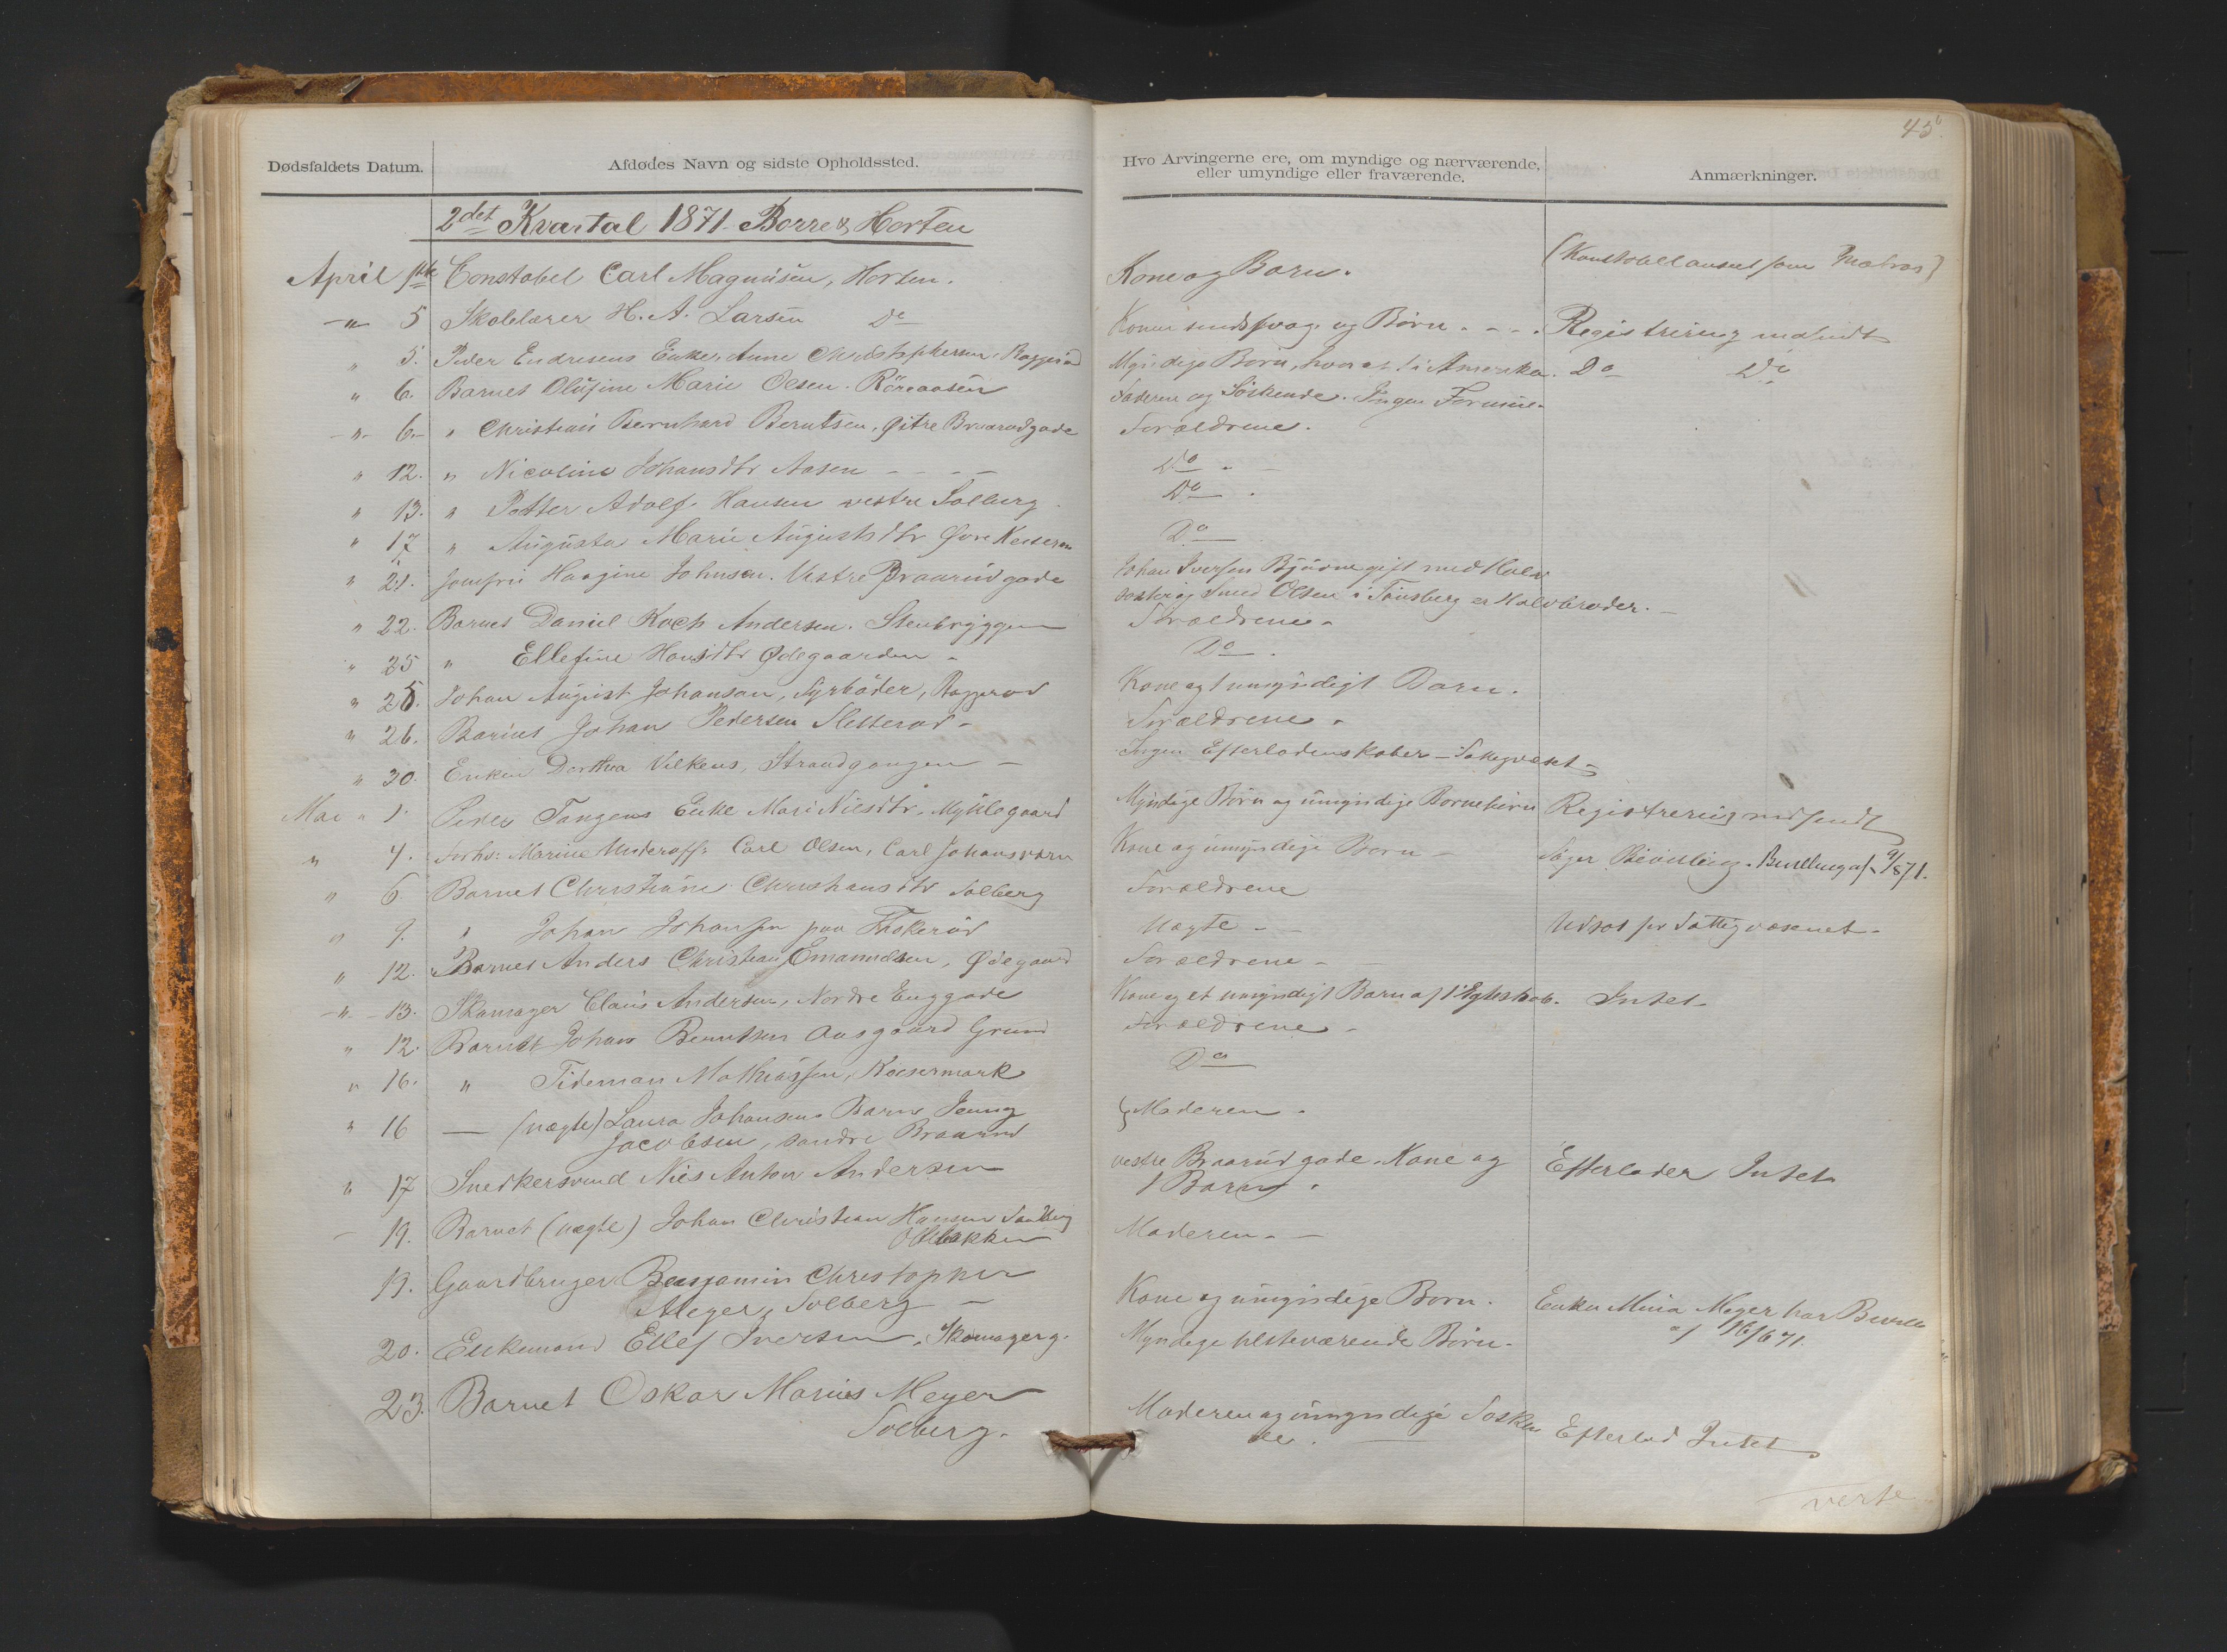 45
Dødsfaldets Datum. Afdødes Navn og sidste Opholdssted. Hvo Arvingerne ere, om myndige og nærværende, eller umyndige eller fraværende. Anmærkninger.
2det Kvartal 1871. Borre & Horten
April 1ste Constabel Carl Magnusen, Horten. Kone og Barn. (Konstabel ansat som Matros)
" 5 Skolelærer H. A. Larsen Do Konen sindssvag og Børn. Registrering indsendt
" 5. Peder Endresens Enke, Anne Christophersen, Myndige Børn, hvoraf 1 i Amerika. Do Do
" 6. Barnet Olufine Marie Olsen. Röreaasen Faderen og Söskende. Ingen Formue.
" 6. " Christian Bernhard Berntsen, Øitre Braarudgade Forældrene.
" 12. " Nicoline Johansdtr Aasen Do
" 13. " Petter Adolf Hansen vestre Solberg Do
" 17 " Augusta Marie Augustsdtr Øvre Do
" 21. Jomfru Haagine Johnsen. Vestre Braarudgade Johan Iversen gift med Halv
søster og Smed Olsen i Tönsberg er Halvbroder.
" 22. Barnet Daniel Koch Andersen. Stenbryggen Forældrene
" 25 " Ellefine Hansdtr Ødegaarden Do
" 25. Johan August Johansen, Fyrbøder, Kone og 1 umyndigt Barn.
" 26. Barnet Johan Pedersen Sletterød Forældrene.
" 30. Enken Dorthea Vilkens, Strandgangen Ingen Efterladenskaber
Mai " 1. Peder Tangens Enke Mari Nilsdtr. Myklegaard Myndige Børn og umyndige Børnebørn Registrering indsendt
" 4. Forhv: Marine Underoff: Carl Olsen, Carl Johansværn Kone og umyndige Børn Søger Bevilling. Bevilling af 9/8 71.
" 6 Barnet Christiane Christiansdtr Solberg Forældrene
" 9. " Johan Johansen paa Uægte Udsat for Fattigvæsenet
" 12. Barnet Anders Christian Emanuelsen, Ødegaard Forældrene
" 13. Skomager Claus Andersen, Nordre Enggade Kone og et umyndigt Barn af 1 Egteskab. Intet
" 12. Barnet Johan Berntsen Aasgaard Grund Forældrene
" 16. " Tideman Mathiassen, Keisermark Do
" 16 — (uægte) Laura Johansens Barn Jenny
Jacobsen, søndre Braarud Moderen.
" 17 Snedkersvend Nils Anton Andersen vestre Braarud gade. Kone og
1 Barn. Efterlader Intet
19. Barnet (uægte) Johan Christian Hansen
Moderen.
19. Gaardbruger Benjamin Christopher
Meyer, Solberg Kone og umyndige Børn. Enken Mina Meyer har Bevill
af 16/6 71.
20. Enkemand Ellef Iversen, Skomagerg. Myndige tilstæværende Børn.
23. Barnet Oskar Marius Meyer
Solberg. Moderen og umyndige Sösken
de. Efterlod Intet
verte